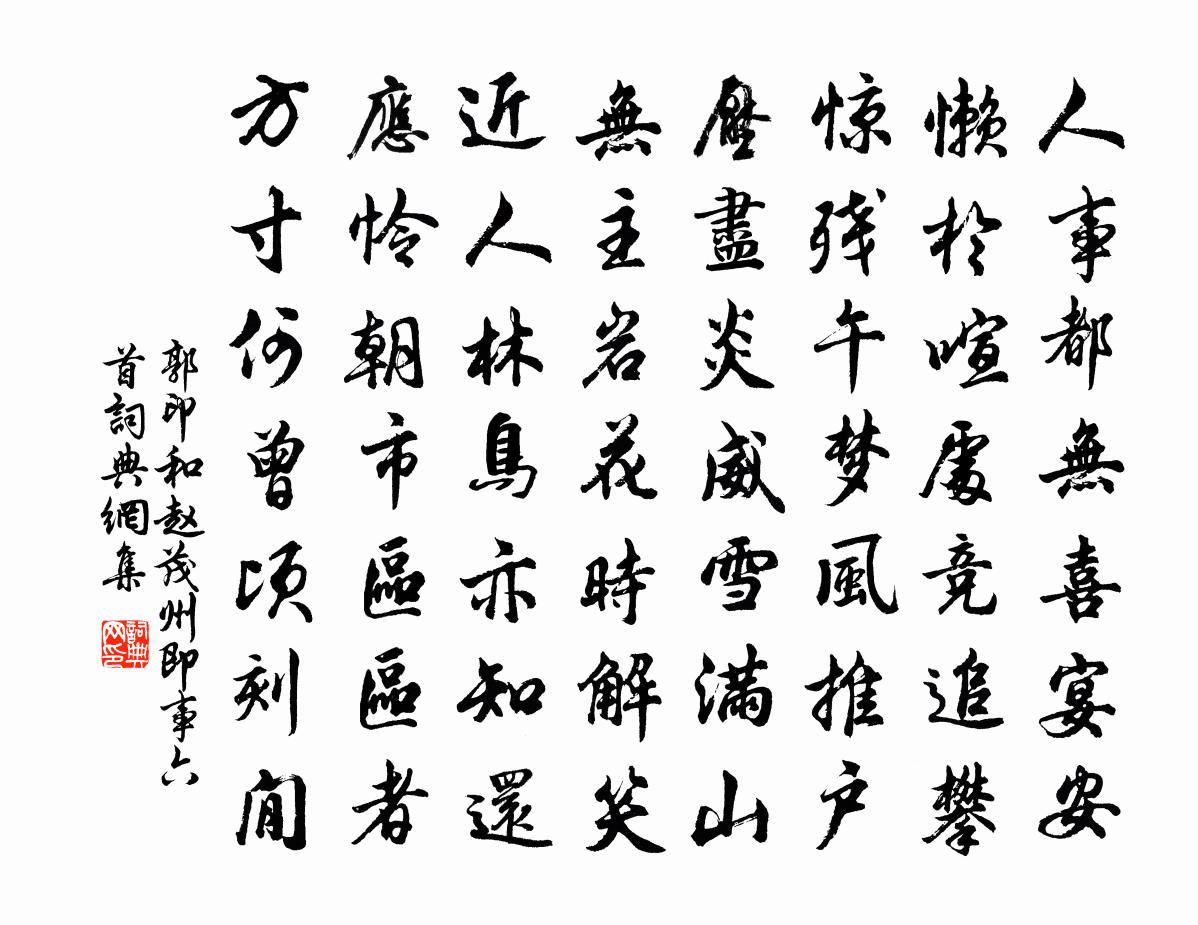 人事都無喜宴安
懶於喧處竞追攀
惊残午梦風推户
壓盡炎威雪满山
無主岩花時解笑
近人林鳥亦知還
應怜朝市區區者
方寸何曾頃刻間
郭印和赵茂州即事六
首詞典網集
詞典网印